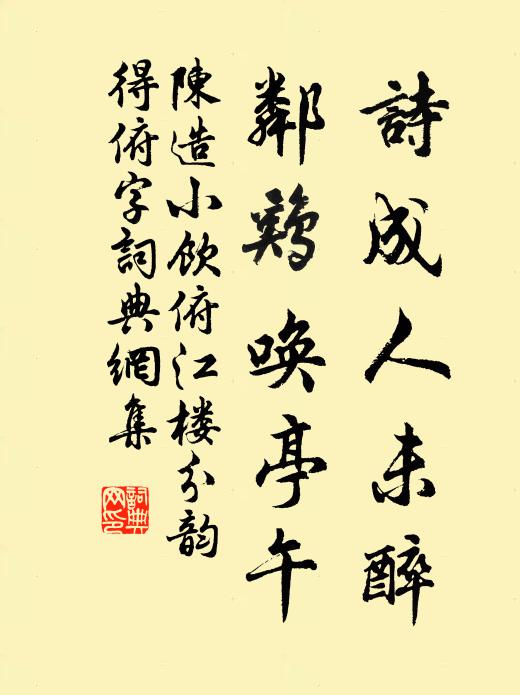 詩成人未醉
鄰鷄喚亭午
陳造小飲俯江楼分韵
得俯字詞典網集
詞典
网印